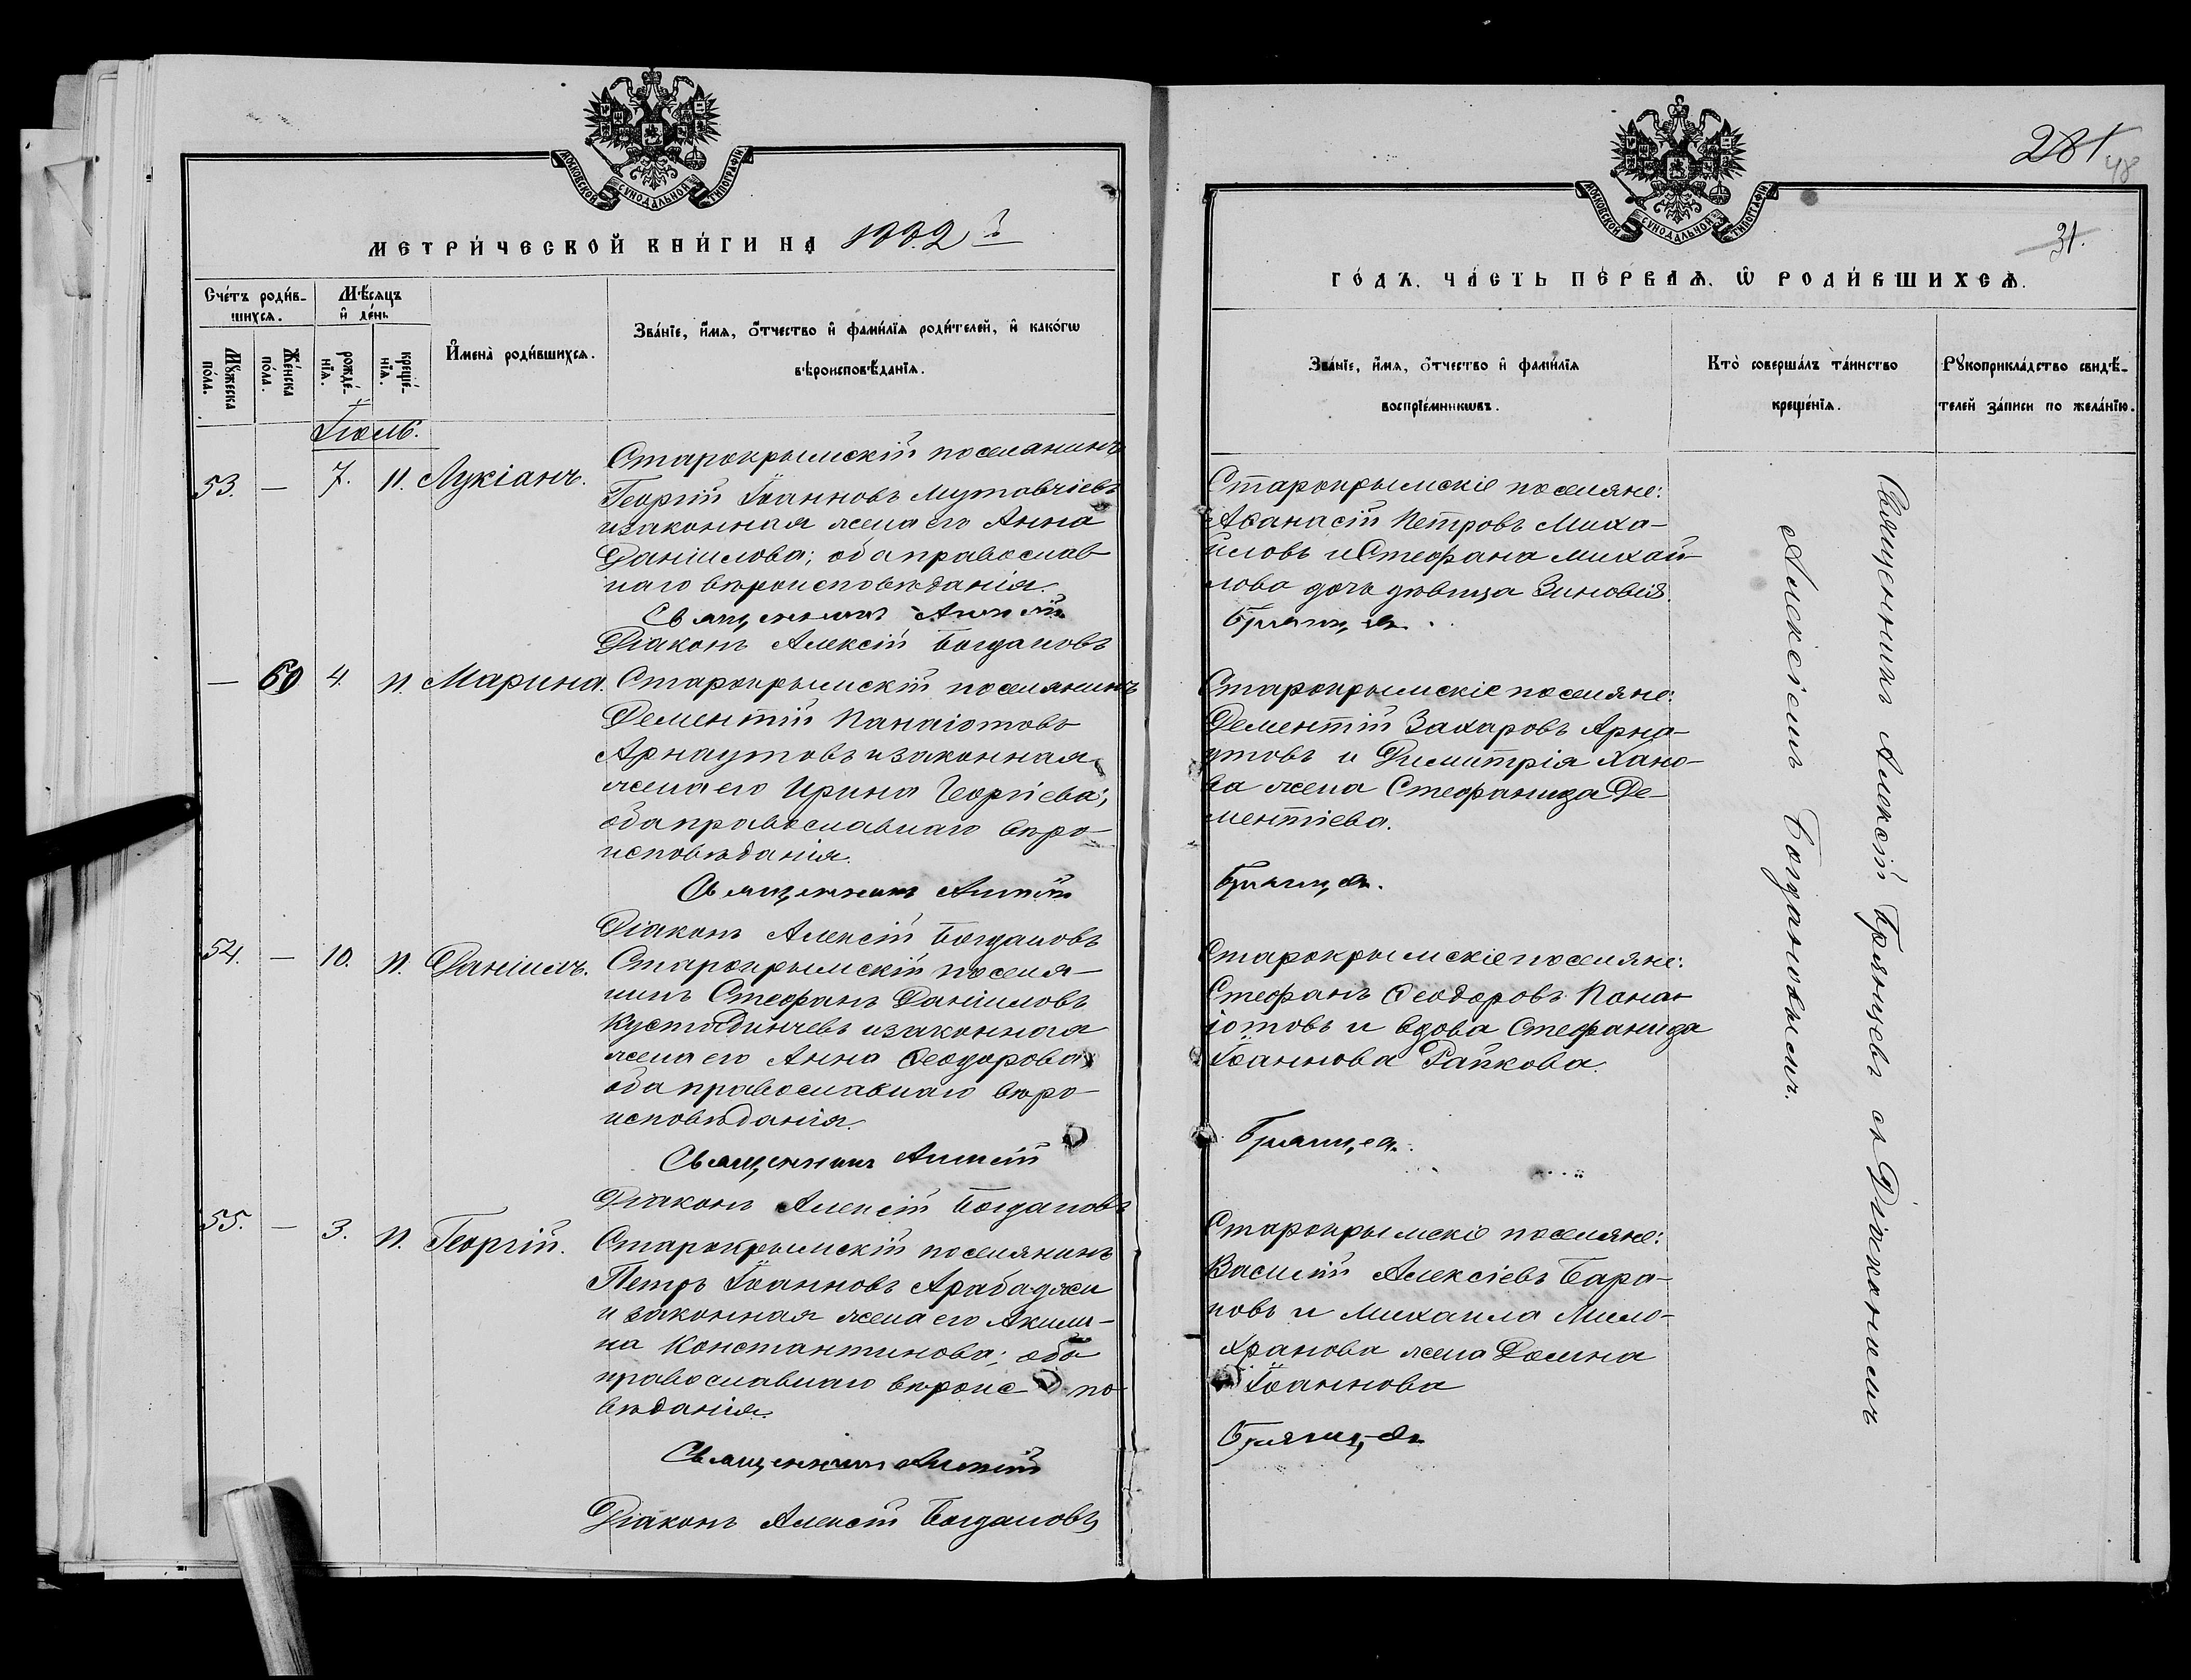 МОСКОВСКОЙ СУНОДАЛЬНОЙ ТИПОГРАФІИ.
МЕТРИ́ЧЕСКОЙ КНИ́ГИ НА 1882 г
Сче́тъ роди́в-
шихся.
Мѣ́сяцъ
и҆ де́нь
Мꙋ́жеска
по́ла.
Же́нска
по́ла.
рожде́-
нїя.
креще́-
нїя.
И҆мена̀ роди́вшихся.
Зва́нїе, и҆́мя, ѻ҆́тчество и҆ фами́лїя роди́телей, и҆ како́гѡ
вѣроисповѣ́данїя.
Іюль.
53. — 7. 11. Лукіанъ.
Старокрымскій поселянинъ
Георгій Іоанновъ Мутавчіевъ
и законная жена его Анна
Даніилова; оба православ-
наго вѣроисповѣданія.
Священникъ Алексій
Діаконъ Алексій Богдановъ
— 60 4. 11. Марина.
Старокрымскій поселянинъ
Дементій Панаіотовъ
Арнаутовъ и законная
жена его Ирина Георгіева;
оба православнаго вѣро-
исповѣданія.
Священникъ Алексій
Діаконъ Алексій Богдановъ
54. — 10. 11. Даніилъ.
Старокрымскій поселя-
нинъ Стефанъ Даніиловъ
Кустадинчевъ и законная
жена его Анна Ѳеодорова;
оба православнаго вѣро-
исповѣданія.
Священникъ Алексій
Діаконъ Алексій Богдановъ
55. — 3. 11. Георгій.
Старокрымскій поселянинъ
Петръ Іоанновъ Арабаджи
и законная жена его Акили-
на Константинова; оба
православнаго вѣроис по-
вѣданія.
Священникъ Алексій
Діаконъ Алексій Богдановъ
281
48
31.
МОСКОВСКОЙ СУНОДАЛЬНОЙ ТИПОГРАФІИ.
ГО́ДЪ, ЧА́СТЬ ПЕ́РВАЯ, Ѡ҆ РОДИ́ВШИХСЯ.
Зва́нїе, и҆́мя, ѻ҆́тчество и҆ фами́лїя
воспрїе́мникѡвъ.
Кто̀ соверша́лъ та́инство
креще́нїя.
Рꙋкоприкла́дство свидѣ́-
телей за́писи по жела́нїю.
Старокрымскіе поселяне:
Аѳанасій Петровъ Миха-
йловъ и Стефана Михай-
лова дочь дѣвица Зиновія.
Брянцевъ.
Старокрымскіе поселяне:
Дементій Захаровъ Арна-
утовъ и Димитрія Хано-
ва жена Стефанида Де-
ментіева.
Брянцевъ.
Старокрымскіе поселяне:
Стефанъ Ѳеодоровъ Пона-
іотовъ и вдова Стефанида
Іоаннова Райкова.
Брянцевъ.
Старокрымскіе поселяне:
Василій Алексіевъ Бара-
новъ и Михаила Мило-
хранова жена Домна
Іоаннова
Брянцевъ
Священникъ Алексій Брянцевъ съ Діакономъ
Алексіемъ Богдановымъ.